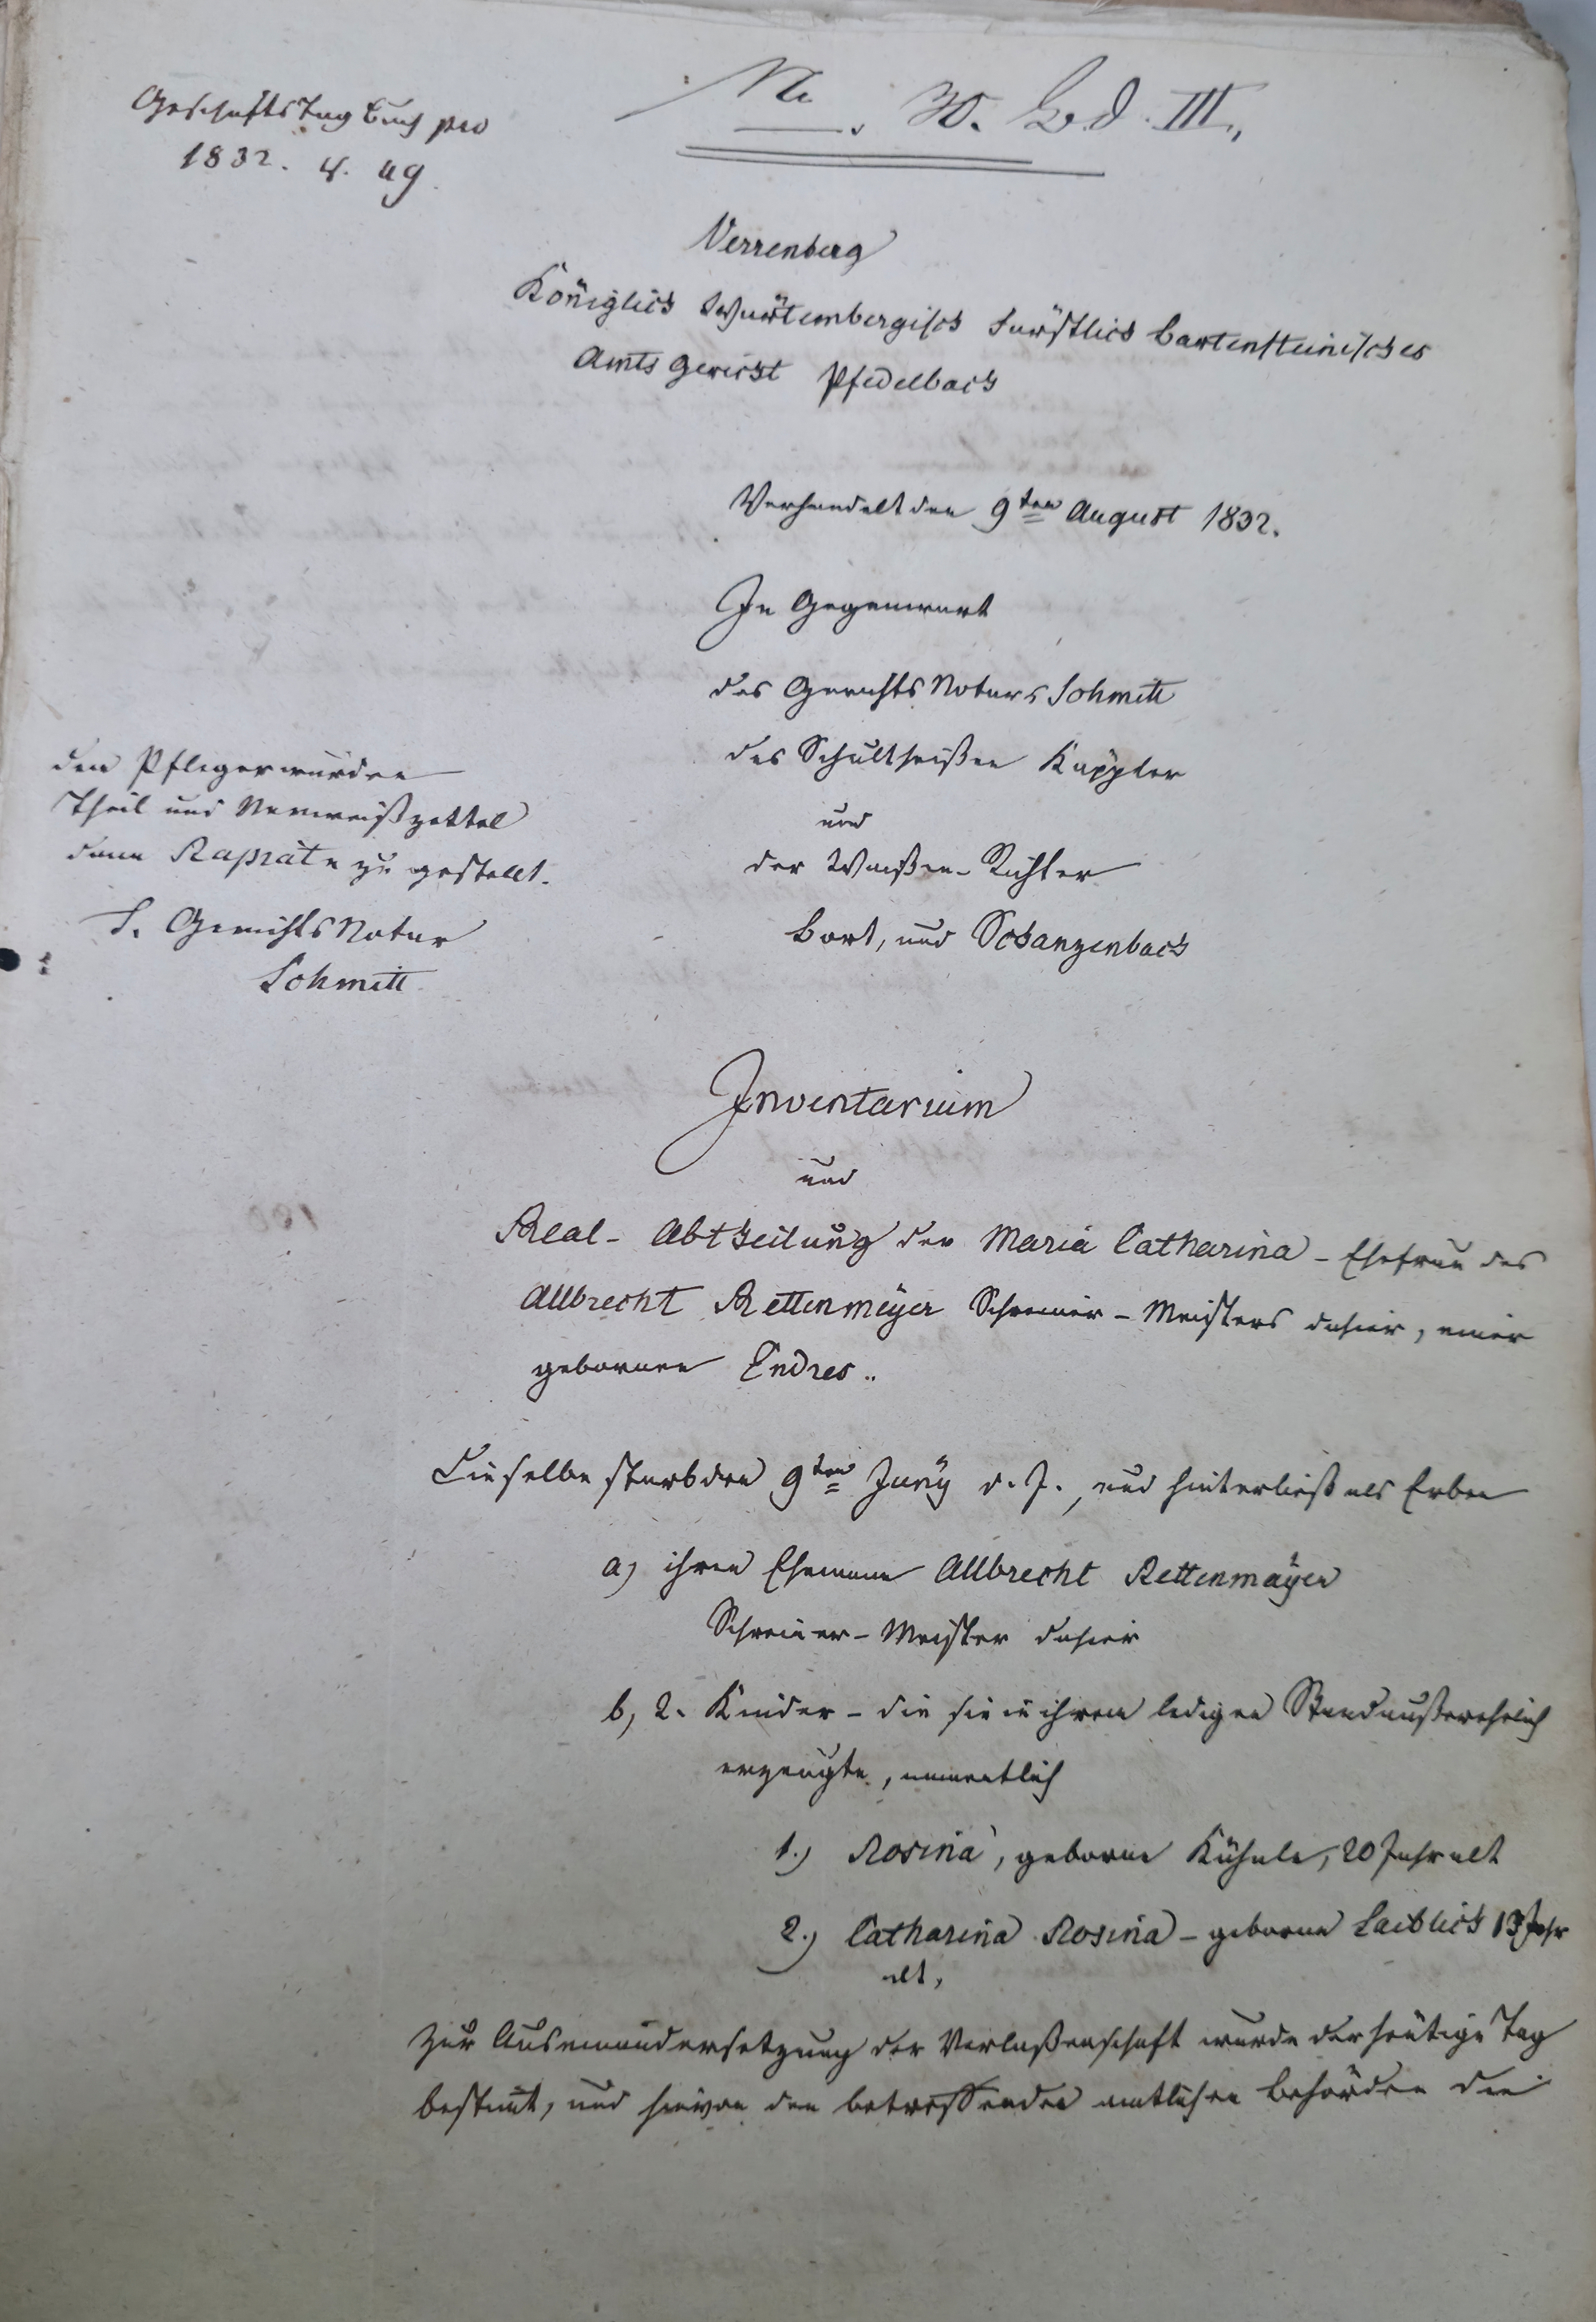 Geschäfts Tag Buch pro
1832. §. 49.
No. 30. Bd. III.
Verrenberg
Königlich Würtembergisch Fürstlich Bartensteinisches
Amts Gericht Pfedelbach
Verhandelt den 9ten August 1832.
In Gegenwart
des Gerichts Notars Schmitt
des Schultheißen Kappler
und
der Waißen-Richter
Bort, und Schanzenbach
den Pfleger wurden
Theil und Verweißzettel
dann zu gestellt.
T. Gerichts Notar
Schmitt
Inventarium
und
Real-Abtheilung der Maria Catharina - Ehefrau des
Allbrecht Rettenmeÿer Schreiner-Meisters dahier, einer
gebornen Endres..
Dieselbe starb den 9ten Junÿ d. J., und hinterließ als Erben
a) ihren Ehemann Allbrecht Rettenmaÿer
Schreiner-Meister dahier
b, 2. Kinder - die sie in ihrem ledigen Stand außerehelich
erzeugte, namentlich
1.) Rosina, geborne Kühnle, 20 Jahr alt
2.) Catharina Rosina - geborne Laiblich 13 Jahr
alt,
Zur Auseinandersetzung der Verlaßenschaft wurde der heütige Tag
bestimt, und hievon den betreffenden amtlichen Behörden die